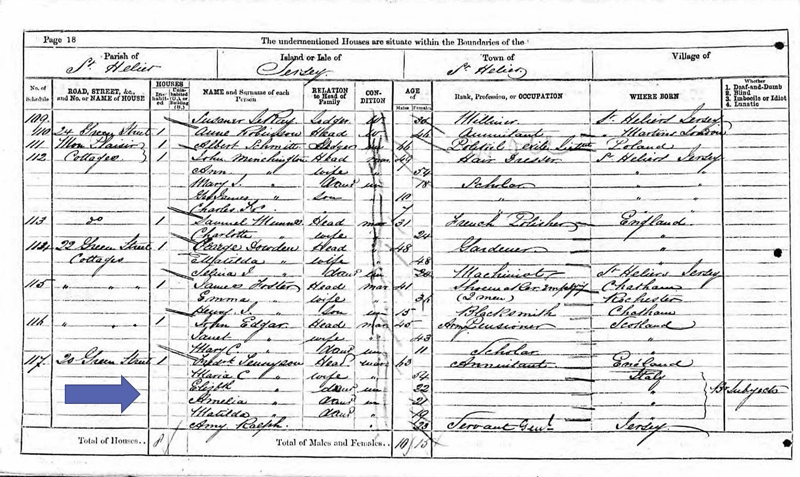 Page 18 The undermentioned Houses are situate within the Boundaries of the
Parish of Island or Isle of Town of Village of
St. Helier Jersey St. Helier
No. of Schedule ROAD, STREET, &c., and No. or NAME of HOUSE HOUSES Inhabited NAME and Surname of each Person RELATION to Head of Family CONDITION AGE of Males Females Rank, Profession, or OCCUPATION WHERE BORN Whether 1. Deaf-and-Dumb 2. Blind 3. Imbecile or Idiot 4. Lunatic
109 1 Lodger 36 Milliner St Heliers Jersey
110 24 Green Street 1 Anne Robinson Head 46 Annuitant
111 Mon Plaisir 1 Albert Schmitt Lodger 46 Political exile Poland
112 Cottages 1 John Head mar 49 Hair Dresser St Heliers Jersey
Ann " wife " 54 "
Mary J. " daur un 18 Scholar "
James " Son 10 " "
Charles
113 do 1 Samuel Head mar 31 French Polisher England
Charlotte " wife " 24 "
114 22 Green Street 1 George Head 48 Gardener "
Cottages Matilda " wife 48 "
" daur Machinist St Heliers Jersey
115 " " " 1 James Foster Head mar 41 Shoemaker Chatham
Emma " wife " 36 (2 men) Rochester
Henry J. " Son un 15 Blacksmith Chatham
116 " " " 1 John Edgar Head mar 45 Army Pensioner Scotland
Janet " wife " 43 "
Mary C. " daur un 11 Scholar "
117 20 Green Street 1 Fredk Tennyson Head mar 63 Annuitant England
Maria C " wife " 54 Italy
Elizth " daur un 22 " Br Subjects
Amelia " daur " 21 "
Matilda " daur " 19 "
Amy Ralph. 23 Servant Genl. Jersey
Total of Houses.. 8 Total of Males and Females.. 10 15